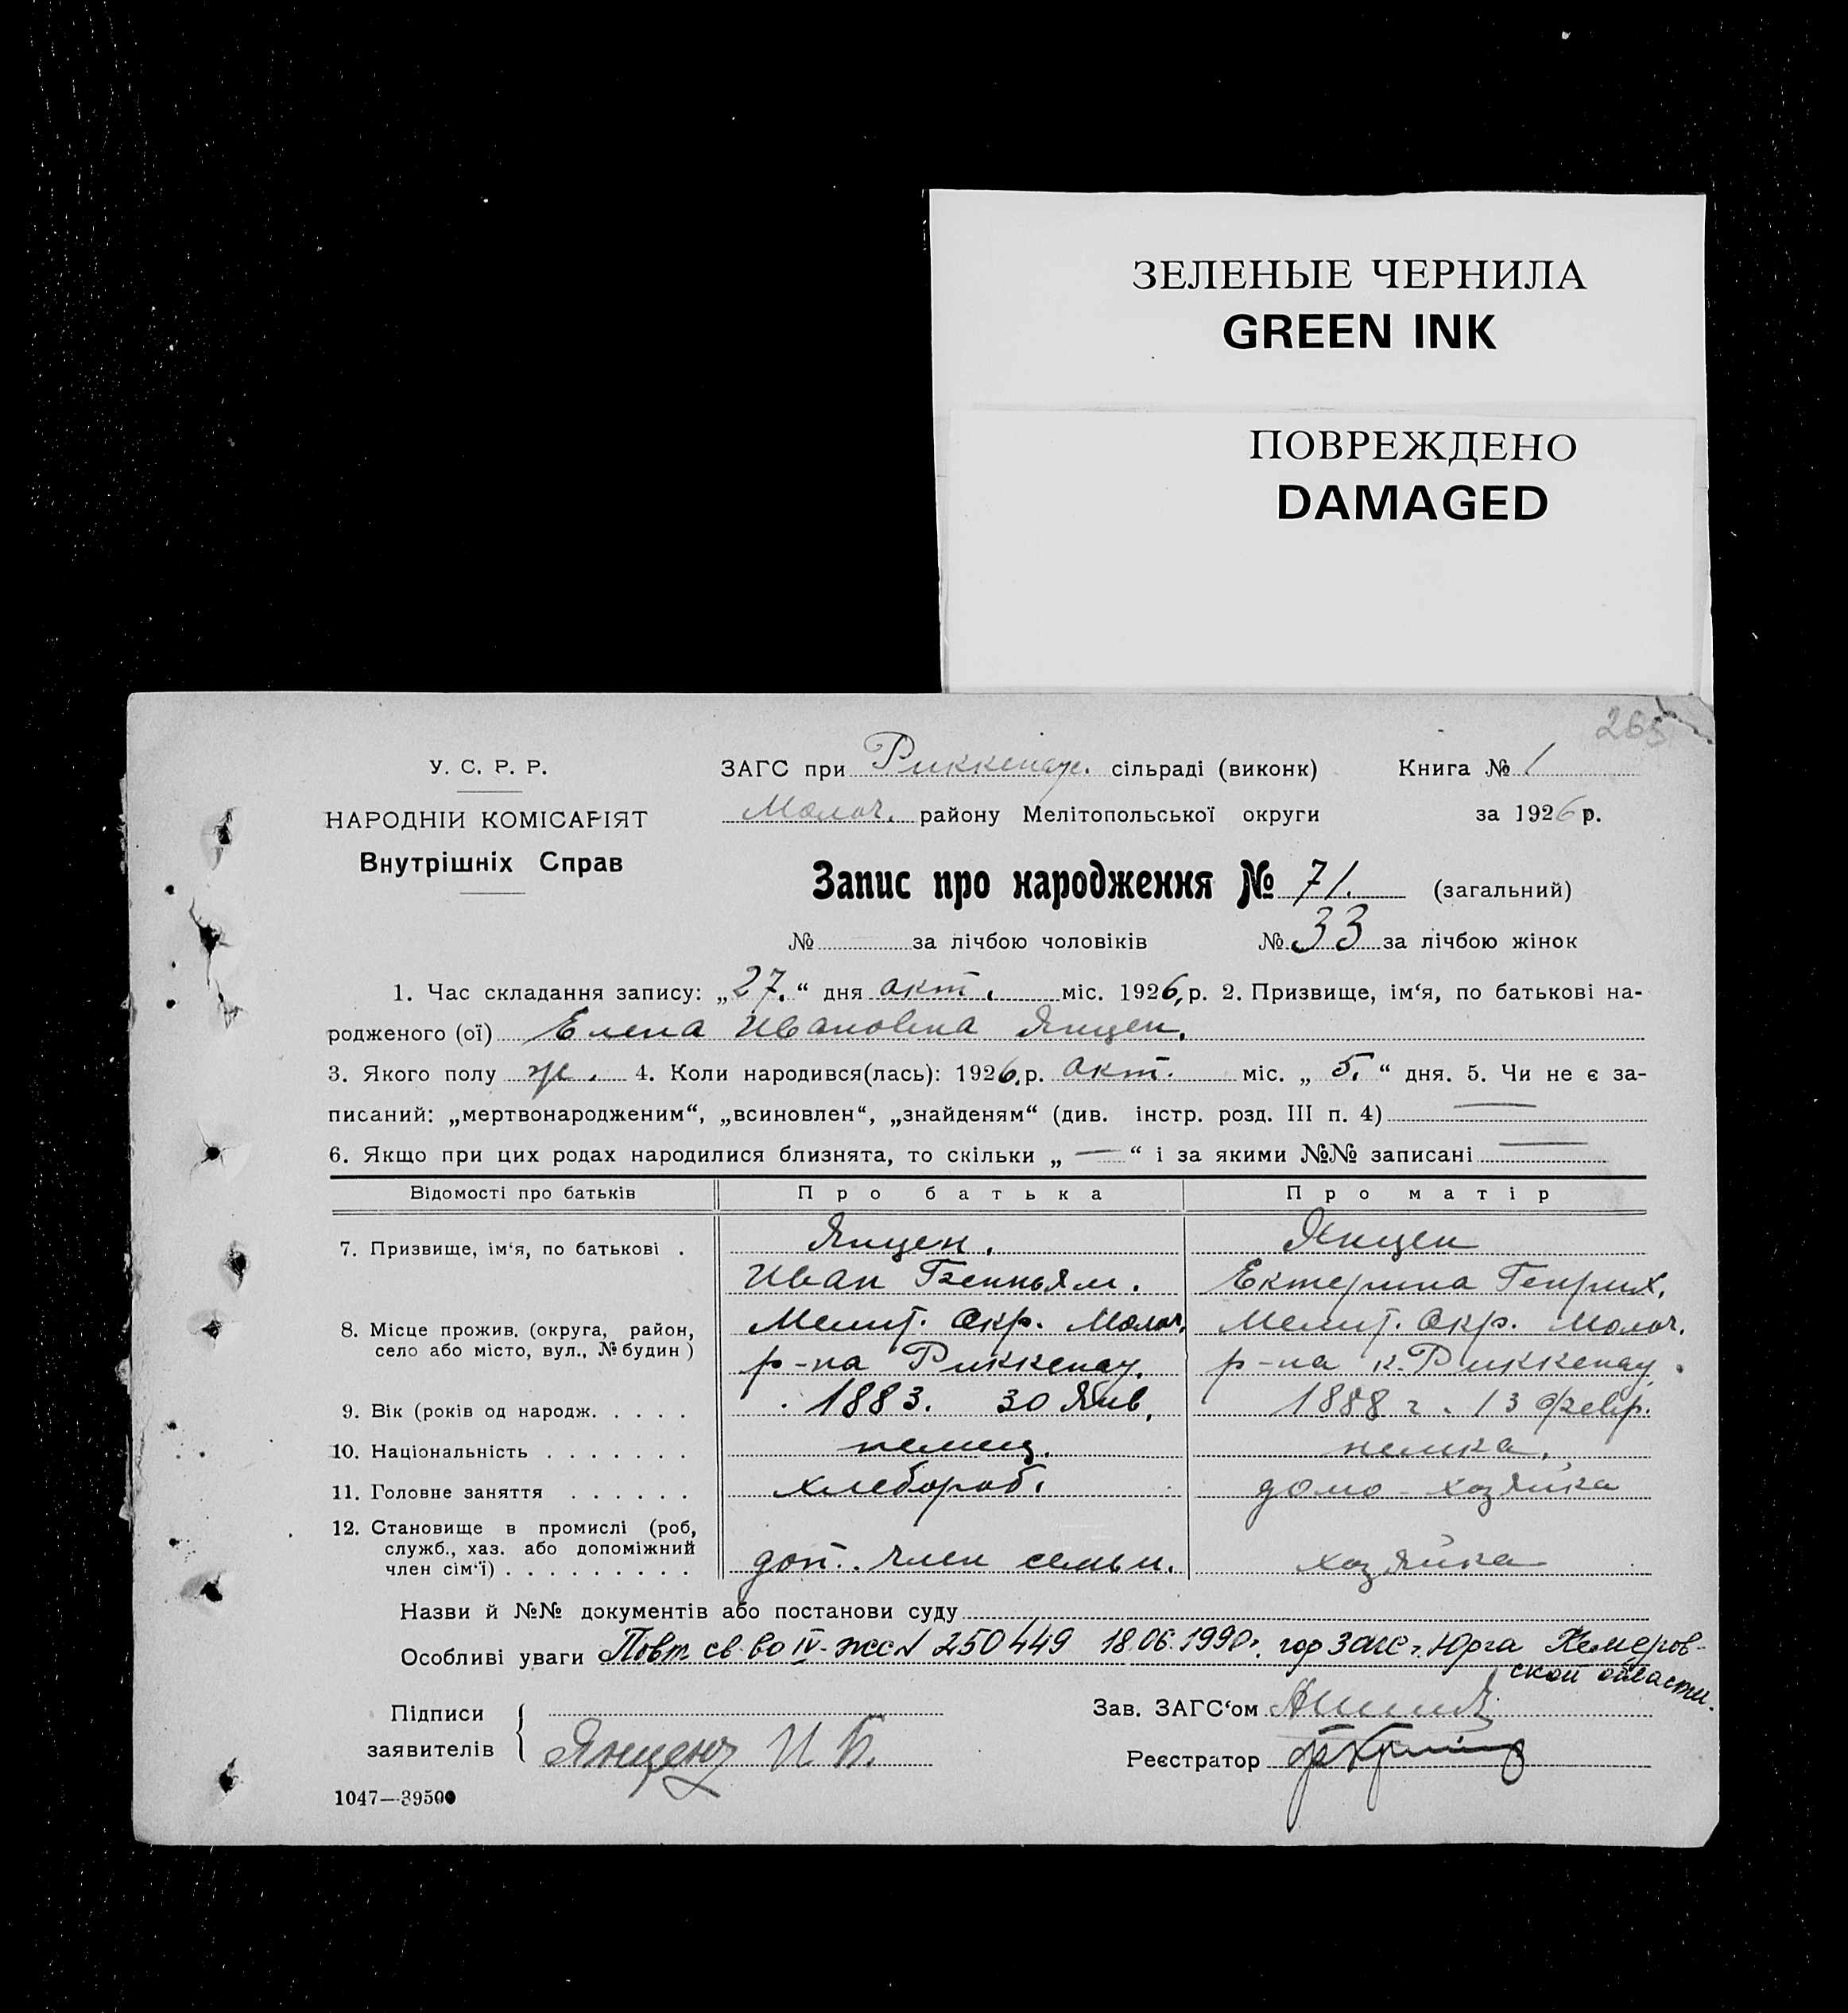 ЗЕЛЕНЫЕ ЧЕРНИЛА
GREEN INK
ПОВРЕЖДЕНО
DAMAGED
265
У. С. Р. Р.
НАРОДНІЙ КОМІСАРІЯТ
Внутрішніх Справ
ЗАГС при Риккенау. сільраді (виконк) Книга № 1
Молоч. району Мелітопольської округи за 1926 р.
Запис про народження № 71. (загальний)
№ за лічбою чоловіків № 33 за лічбою жінок
1. Час складання запису: „27.“ дня окт. міс. 1926, р. 2. Призвище, ім‘я, по батькові на-
родженого (ої) Елена Ивановна Янцен.
3. Якого полу ж. 4. Коли народився(лась): 1926. р. окт. міс. „ 5. “ дня. 5. Чи не є за-
писаний: „мертвонародженим“, „всиновлен“, „знайденям“ (див. інстр. розд. III п. 4) —
6. Якщо при цих родах народилися близнята, то скільки „ — “ і за якими №№ записані —
Відомості про батьків Про батька Про матір
7. Призвище, ім‘я, по батькові . Янцен. Янцен
Иван Бенньям. Ектерина Генрих.
8. Місце прожив. (округа, район, Мелит. Окр. Молоч. Мелит. Окр. Молоч.
село або місто, вул., № будин) р-на Риккенау. р-на к. Риккенау.
9. Вік (років од народж. . . . . 1883. 30 Янв. 1888 г. 13 февр.
10. Національність . . . . . . . немец. немка.
11. Головне заняття . . . . . . хлебороб. домо-хозяйка
12. Становище в промислі (роб,
служб., хаз. або допоміжний
член сім‘ї) . . . . . . . . . доп. член семьи. хозяйка
Назви й №№ документів або постанови суду
Особливі уваги Повт. св-во IV-жс № 250449 18.06.1990г. гор ЗАГС г. Юрга Кемеров-
ской области.
Підписи
заявителів Янцен И Б.
Зав. ЗАГС‘ом
Реєстратор
1047—39500